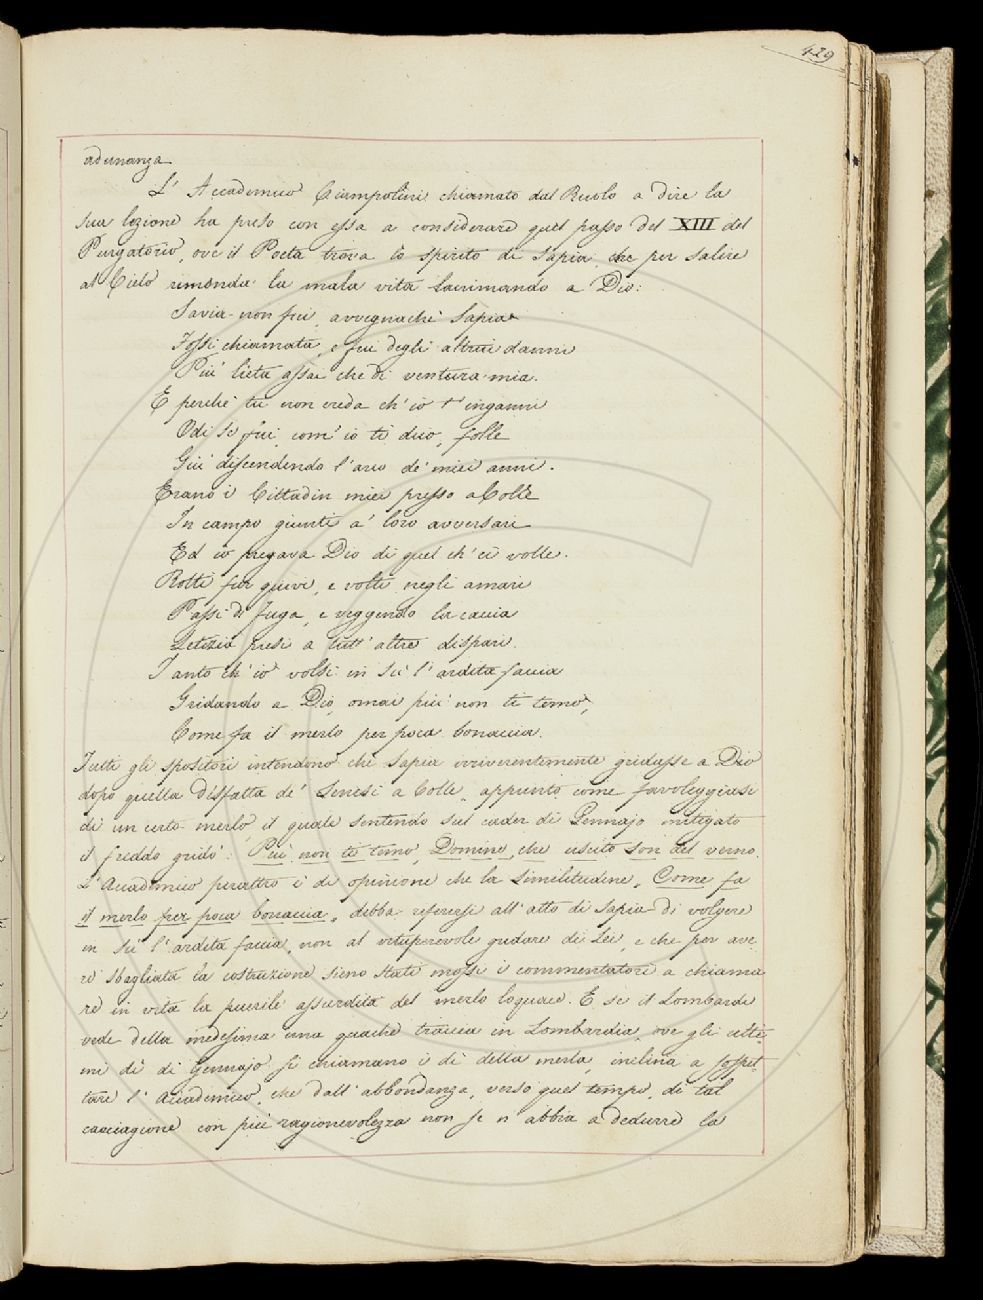 429
adunanza
L' Accademico Ciampolini chiamato dal Ruolo a dire la
sua lezione ha preso con essa a considerare quel passo del XIII del
Purgatorio, ove il Poeta trova lo spirito di Sapia, che per salire
al Cielo rimonda la mala vita lacrimando a Dio:
Savia non fui, avvegnachè Sapia
Fossi chiamata, e fui degli altrui danni
Più lieta assai che di ventura mia.
E perchè tu non creda ch' io t' inganni
Odi se fui, com' io ti dico, folle
Giù discendendo l' arco de' miei anni.
Erano i Cittadin miei presso a Colle
In campo giunti a' loro avversari
Ed io pregava Dio di quel ch' ei volle.
Rotti fur quivi, e volti negli amari
Passi di fuga, e veggendo la caccia
Letizia presi a tutt' altre dispari.
Tanto ch' io volsi in sù l' ardita faccia
Gridando a Dio, omai più non ti temo,
Come fa il merlo per poca bonaccia.
Tutti gli spositori intendono che Sapia irriverentemente gridasse a Dio
dopo quella disfatta de' Senesi a Colle, appunto come favoleggiasi
di un certo merlo il quale sentendo sul cader di Gennajo mitigato
il freddo gridò: Più non ti temo, Domine, che uscito son del verno.
L' Accademico peraltro è di opinione che la similitudine, Come fa
il merlo per poca bonaccia, debba riferirsi all' atto di Sapia di volgere
in sù l' ardita faccia, non al vituperevole gridare di Lei, e che per ave
re sbagliata la costruzione sieno stati mossi i commentatori a chiama
re in vita la puerile assurdità del merlo loquace. E se il Lombardi
vede della medesima una qualche traccia in Lombardia, ove gli ulti
mi dì di Gennajo si chiamano i dì della merla, inclina a sospet-
tare l' Accademico, che dall' abbondanza, verso quel tempo, di tal
cacciagione con più ragionevolezza non se n' abbia a dedurre la